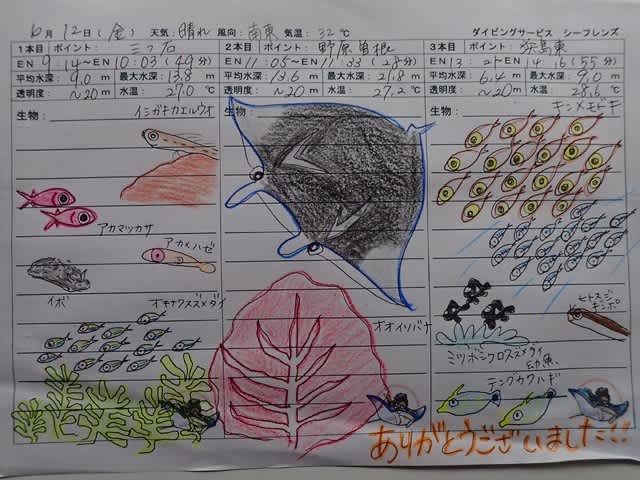 6月12日(金) 天気:晴れ 風向:南東 気温:32℃ ダイビングサービス シーフレンズ
1本目 ポイント: 三ツ石
EN 9:14〜EN 10:03(49分)
平均水深: 9.0m 最大水深: 13.8m
透明度: 〜20m 水温: 27.0℃
生物: イシガキカエルウオ
アカマツカサ
アカメハゼ
イボ
オキナワスズメダイ
2本目 ポイント: 野原曽根
EN 11:05〜EN 11:33(28分)
平均水深: 13.6m 最大水深: 21.8m
透明度: 〜20m 水温: 27.2℃
生物:
オオイソバナ
3本目 ポイント: 浜島東
EN 13:21〜EN 14:16(55分)
平均水深: 6.4m 最大水深: 9.0m
透明度: 〜20m 水温: 28.6℃
生物: キンメモドキ
ヒトスジ
ギンポ
ミツボシクロスズメダイ
幼魚
テングカワハギ
ありがとうございました!!